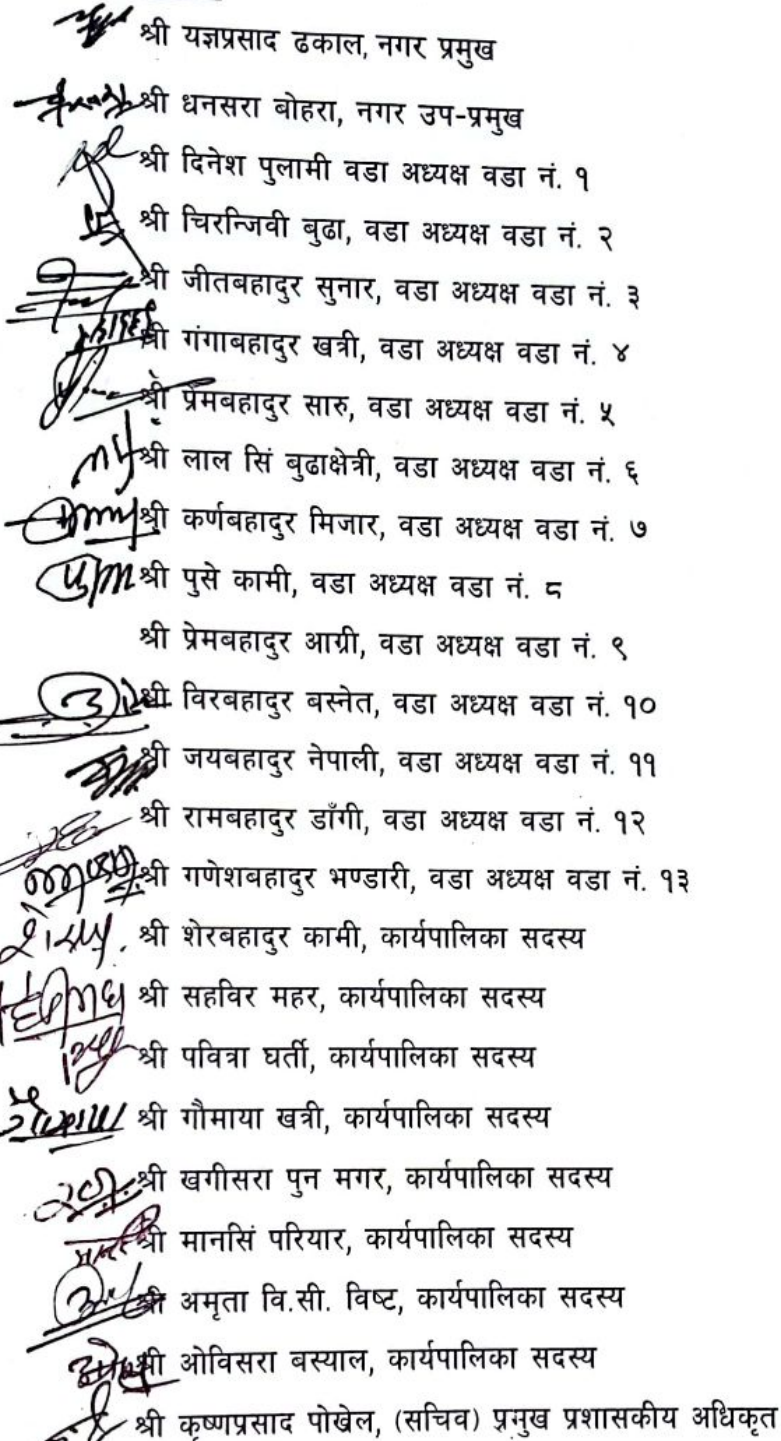 श्री यज्ञप्रसाद ढकाल, नगर प्रमुख
श्री धनसरा बोहरा, नगर उप-प्रमुख
श्री दिनेश पुलामी वडा अध्यक्ष वडा नं. १
श्री चिरन्जिवी बुढा, वडा अध्यक्ष वडा नं. २
श्री जीतबहादुर सुनार, वडा अध्यक्ष वडा नं. ३
श्री गंगाबहादुर खत्री, वडा अध्यक्ष वडा नं. ४
श्री प्रेमबहादुर सारु, वडा अध्यक्ष वडा नं. ५
श्री लाल सिं बुढाक्षेत्री, वडा अध्यक्ष वडा नं. ६
श्री कर्णबहादुर मिजार, वडा अध्यक्ष वडा नं. ७
श्री पुसे कामी, वडा अध्यक्ष वडा नं. ८
श्री प्रेमबहादुर आग्री, वडा अध्यक्ष वडा नं. ९
श्री विरबहादुर बस्नेत, वडा अध्यक्ष वडा नं. १०
श्री जयबहादुर नेपाली, वडा अध्यक्ष वडा नं. ११
श्री रामबहादुर डाँगी, वडा अध्यक्ष वडा नं. १२
श्री गणेशबहादुर भण्डारी, वडा अध्यक्ष वडा नं. १३
श्री शेरबहादुर कामी, कार्यपालिका सदस्य
श्री सहविर महर, कार्यपालिका सदस्य
श्री पवित्रा घर्ती, कार्यपालिका सदस्य
श्री गौमाया खत्री, कार्यपालिका सदस्य
श्री खगीसरा पुन मगर, कार्यपालिका सदस्य
श्री मानसिं परियार, कार्यपालिका सदस्य
श्री अमृता वि.सी. विष्ट, कार्यपालिका सदस्य
श्री ओविसरा बस्याल, कार्यपालिका सदस्य
श्री कृष्णप्रसाद पोखेल, (सचिव) प्रमुख प्रशासकीय अधिकृत